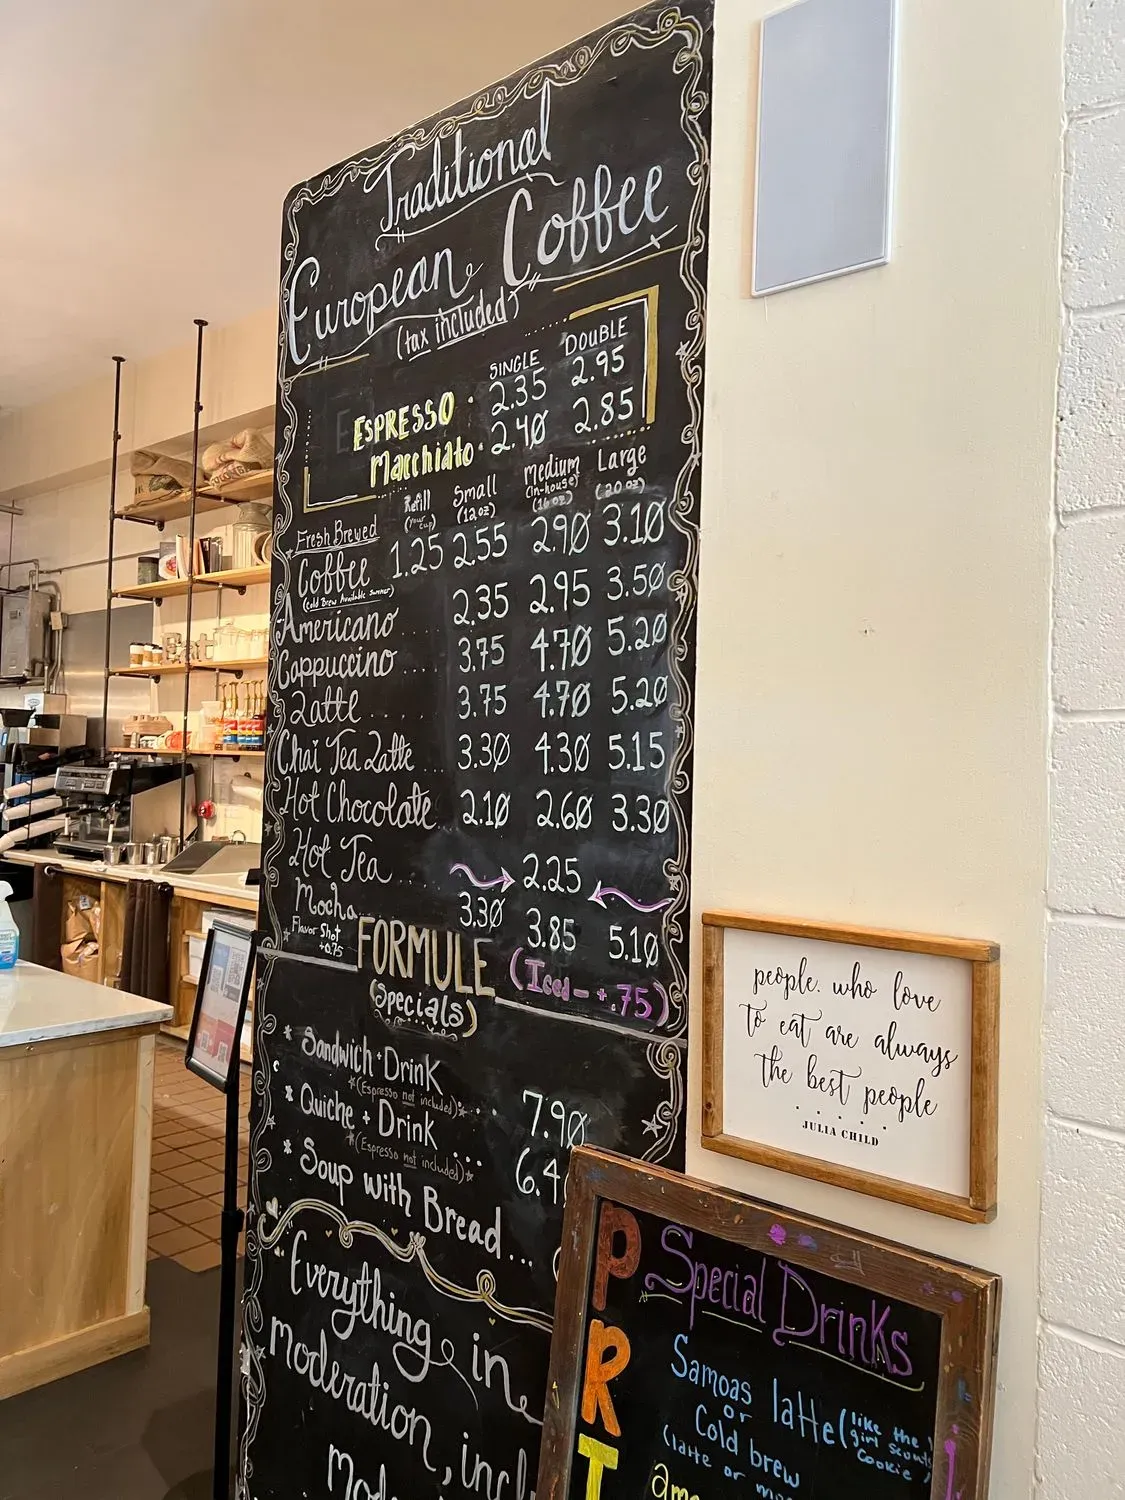 Traditional
European Coffee
(tax included)
SINGLE DOUBLE
ESPRESSO · 2.35 2.95
Macchiato · 2.40 2.85
Refill (your cup) Small (12oz) Medium (in-house) (16 oz) Large (20 oz)
Fresh Brewed
Coffee 1.25 2.55 2.90 3.10
(Cold Brew Available Summer)
Americano .... 2.35 2.95 3.50
Cappuccino .... 3.75 4.70 5.20
Latte ...... 3.75 4.70 5.20
Chai Tea Latte ... 3.30 4.30 5.15
Hot Chocolate.. 2.10 2.60 3.30
Hot Tea .... 2.25
Mocha 3.30 3.85 5.10
Flavor Shot
+0.75
FORMULE (Iced - +.75)
(Specials)
* Sandwich + Drink
*(Espresso not included)* ... 7.90
* Quiche + Drink
*(Espresso not included)* ... 6.4
* Soup with Bread...
Everything in
moderation, incl
mod
people. who love
to eat are always
the best people
JULIA CHILD
P
R
T
Special Drinks
Samoas latte (like the
or girl scouts
Cold brew cookie)
(latte or mo